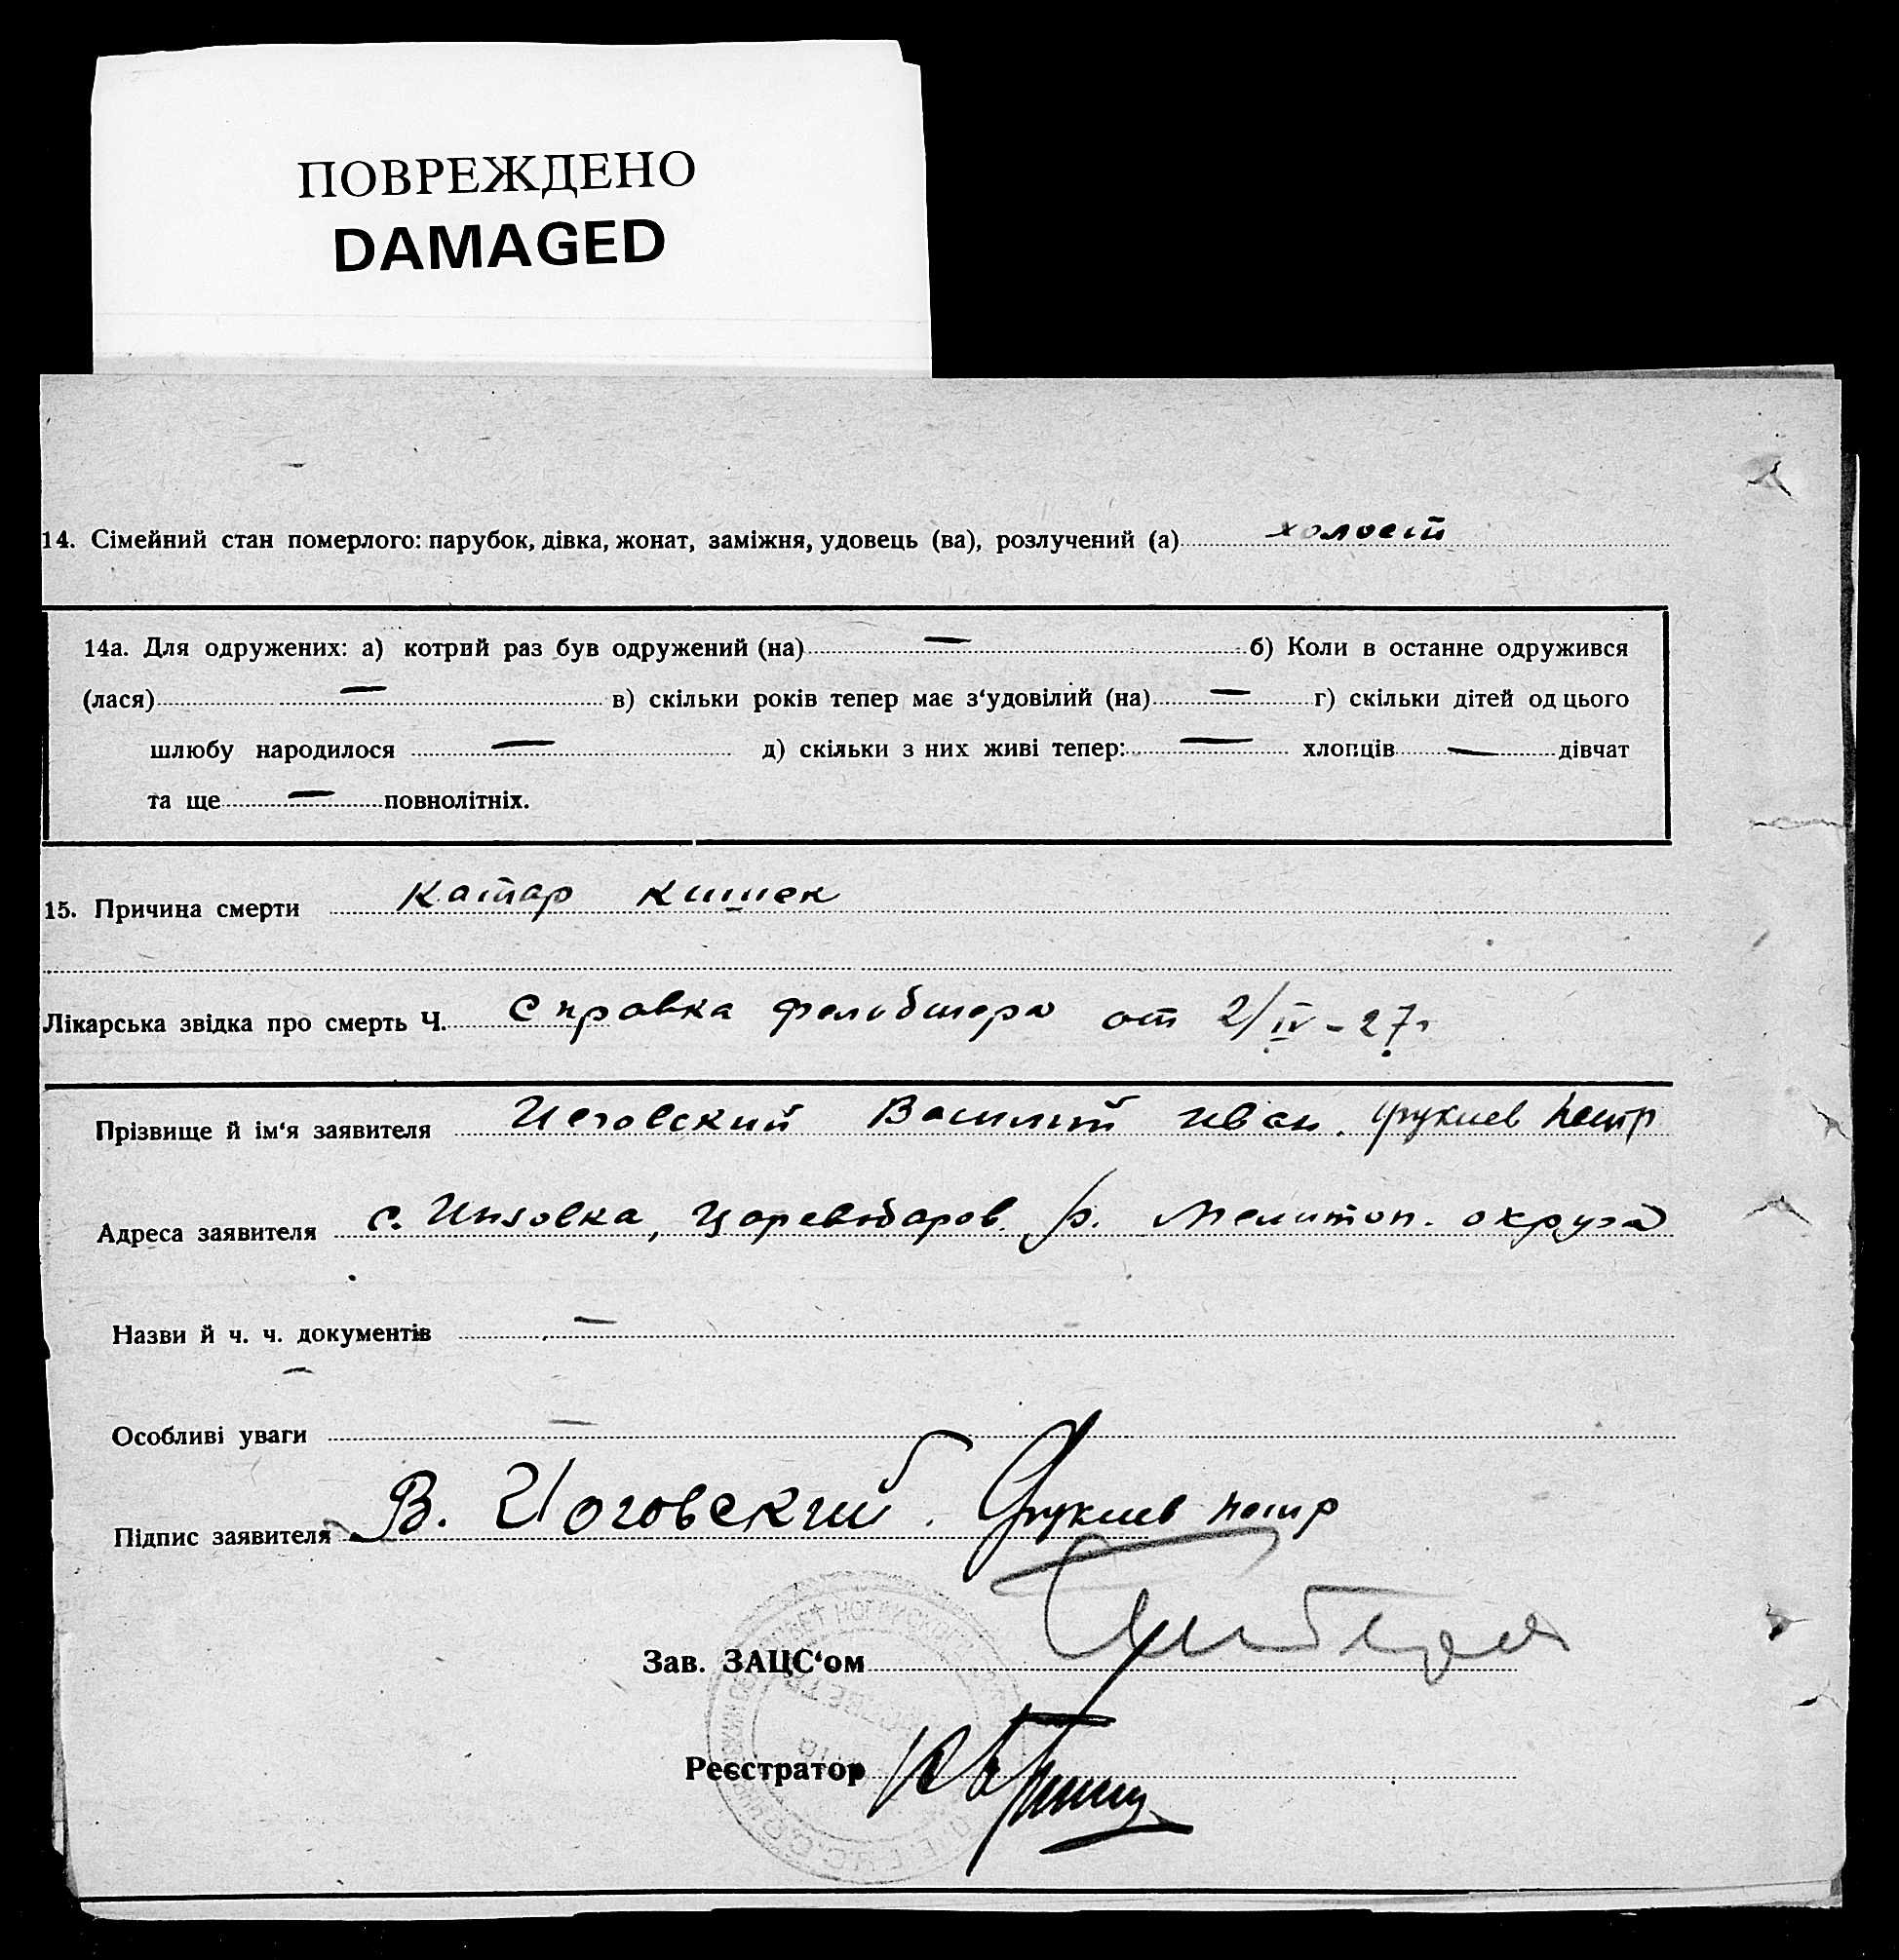 ПОВРЕЖДЕНО
DAMAGED
14. Сімейний стан померлого: парубок, дівка, жонат, заміжня, удовець (ва), розлучений (а) холост
14а. Для одружених: а) котрий раз був одружений (на) — б) Коли в останне одружився
(лася) — в) скільки років тепер має з‘удовілий (на) — г) скільки дітей од цього
шлюбу народилося — д) скільки з них живі тепер: — хлопців — дівчат
та ще — повнолітніх.
15. Причина смерти Катар кишек
Лікарська звідка про смерть Ч. Справка фельдшера от 2/IV-27г
Прізвище й ім‘я заявителя Василий Иван. Петр
Адреса заявителя с. Инзовка, Цареводаров. р. Мелитоп. округа
Назви й ч. ч. документів —
Особливі уваги —
Підпис заявителя В. Иоговский. Петр
Зав. ЗАЦС‘ом
Реєстратор